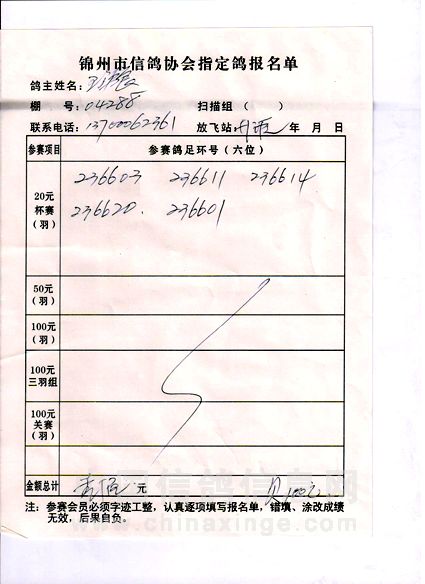 锦州市信鸽协会指定鸽报名单
鸽主姓名：王
棚 号：04288 扫描组（ ）
联系电话：13700062361 放飞站： 年 月 日
参赛项目 参赛鸽足环号（六位）
20元
杯赛
（羽）
236603 236611 236614
236620. 236601
50元
（羽）
100元
（羽）
100元
三羽组
100元
关赛
（羽）
金额总计 壹佰 元 100元
注：参赛会员必须字迹工整，认真逐项填写报名单，错填、涂改成绩
无效，后果自负。
中国信鸽信息网
www.chinaxinge.com